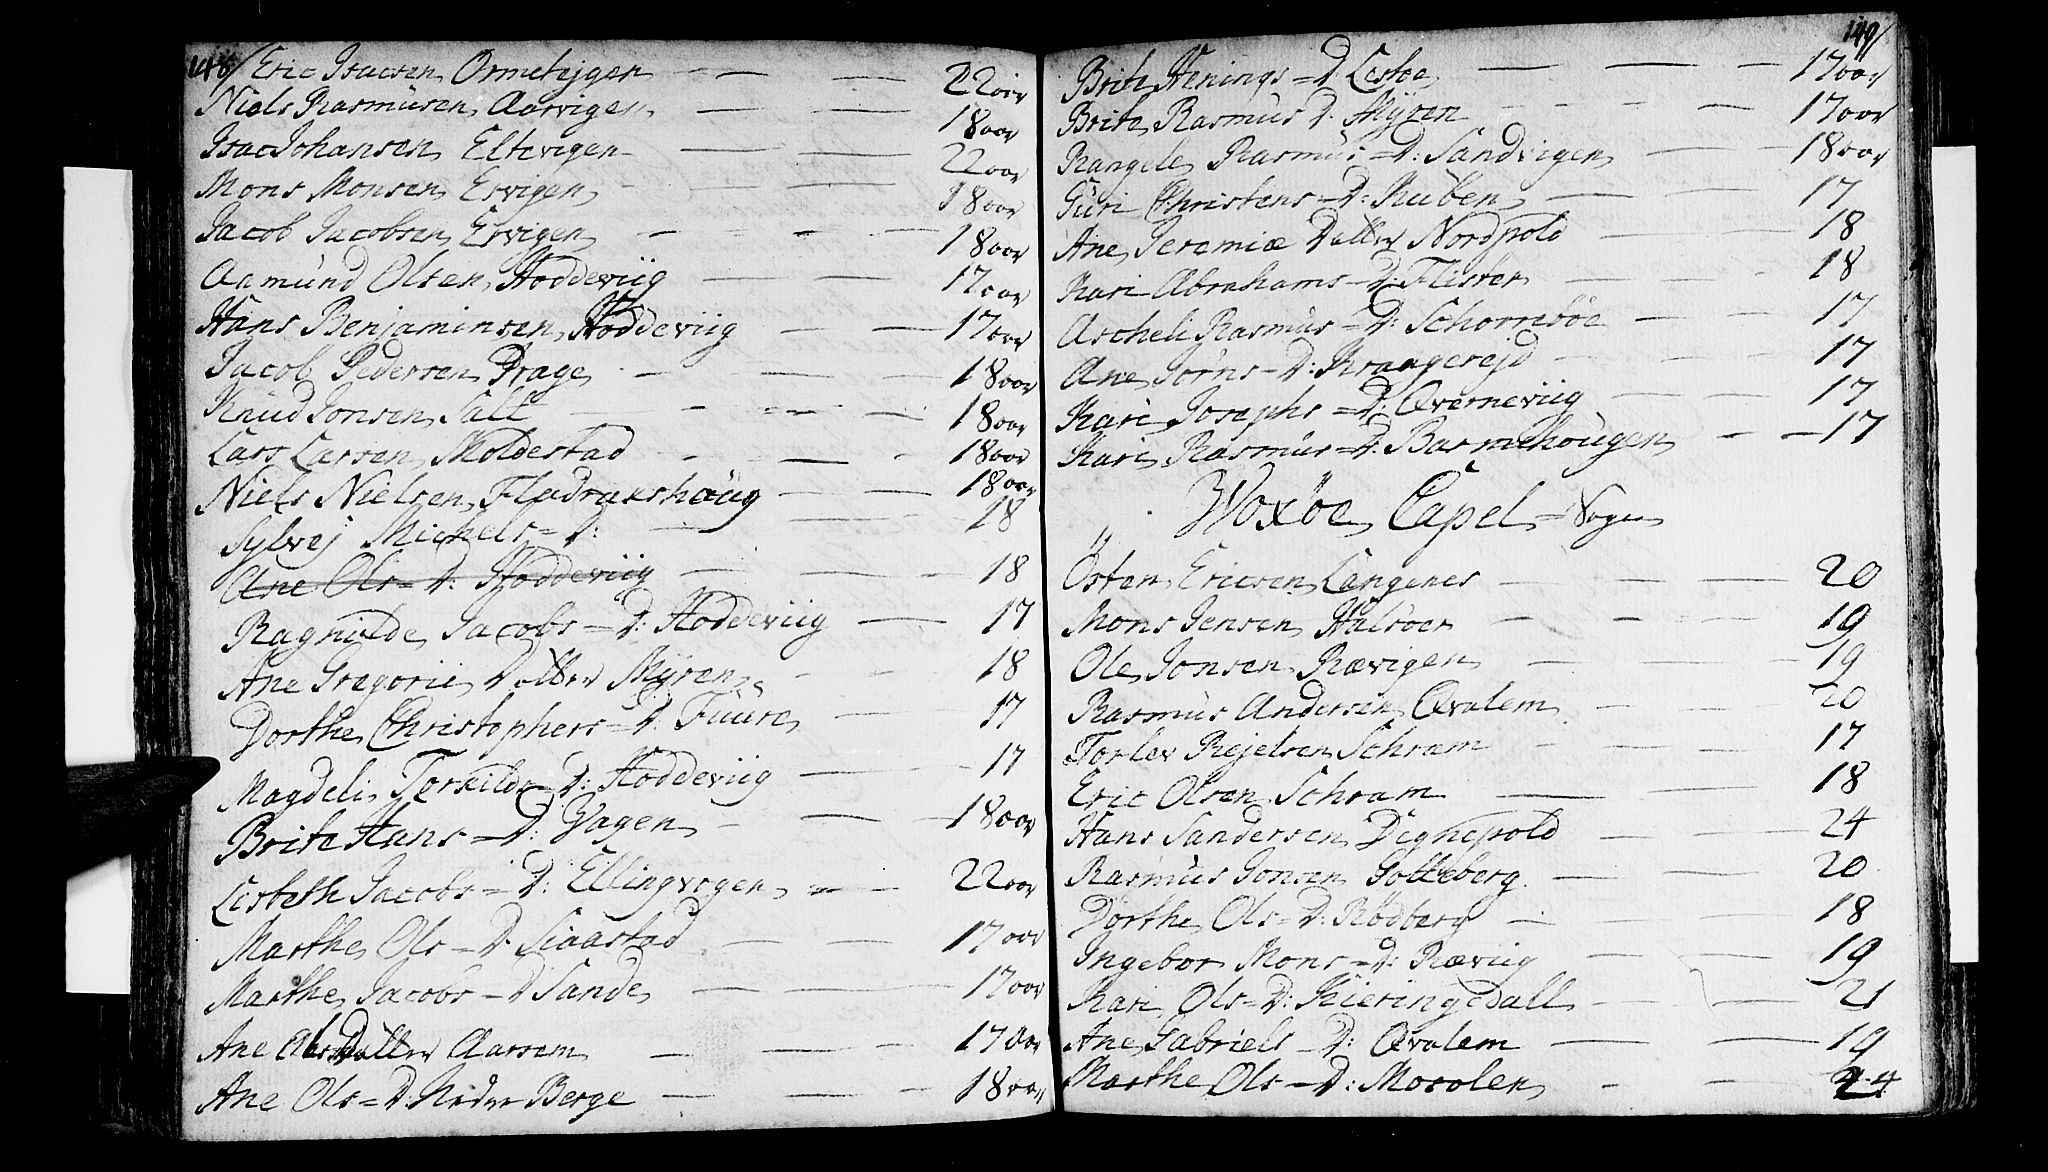 148/ Eric Isacsen Ormetejgen — — — 22 oor
Niels Rasmüsen Aarvigen — — — 18 oor
Isac Johansen Eltevigen — — — 22 oor
Mons Monsen Ervigen — — — 18 oor
Jacob Jacobsen Ervigen — — — 18 oor
Aamund Olsen Hoddeviig — — 17 oor
Hans Benjaminsen Hoddeviig — — 17 oor
Jacob Pedersen Drage — — — 18 oor
Knud Jonsen Salt — — — 18 oor
Lars Larsen Moldestad — — — 18 oor
Niels Nielsen Fladraxshaug — — 18 oor
Sylvej Michels=D: — — 18
Ane Ols=D: Hoddeviig — — 18
Ragnilde Jacobs=D: Hoddeviig — 17
Ane Gregorii Datter Myren — — 18
Dorthe Christophers=D. Fuure — — 17
Magdeli Torkilds=D: Hoddeviig — — 17
Brite Hans=D: Vagen — — 18 oor
Lisbeth Jacobs=D: Ellingvogen — — 22 oor
Marthe Ols=D. Siaastad — — 17 oor
Marthe Jacobs=D Sande — — 17 oor
Ane Datter Aarsem — — 17 oor
Ane Ols=D. Neder Berge — — 18 oor
149/
Brite Henings=D. Lestoe — — 17 oor
Brite Rasmus D. Myren — — 17 oor
Rangele Rasmus=D: Sandvigen — — 18 oor
Guri Christens=D: Ruben — — 17
Ane Jeremiæ Datter Nordpold — — 18
Kari Abrahams=D. Flister — — 18
Ascheli Rasmus=D: Schorresöe — — 17
Ane Jörns=D: Kraagerejd — — 17
Kari Josephs=D: Qverneviig — — 17
Kari Rasmus=D. Barmehougen — — 17
Woxöe Capel=Sogn
Osten Ericsen Langenes — — 20
Mons Jensen Halsöer — — 19
Ole Jonsen Rævigen — — 19
Rasmus Andersen Qvalem — — 20
Torlev Rejelsen Schram — — 17
Eric Olsen Schram — — 18
Hans Sandersen Degnepold — — 24
Rasmus Jonsen Gotteberg — — 20
Dorthe Ols=D: Rödberg — — 18
Ingebor Mons=D: Ræviig — — 19
Kari Ols=D: Kieringsdall — — 21
Ane Gabriels=D: Qvalem — — 19
Marthe Ols=D: Morolen — — 24